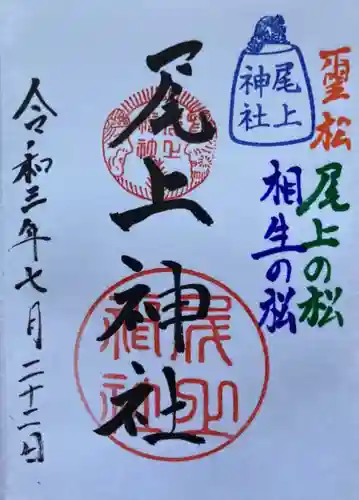 霊松
尾上の松
相生の松
尾上
神社
尾上神社
令和三年七月二十二日